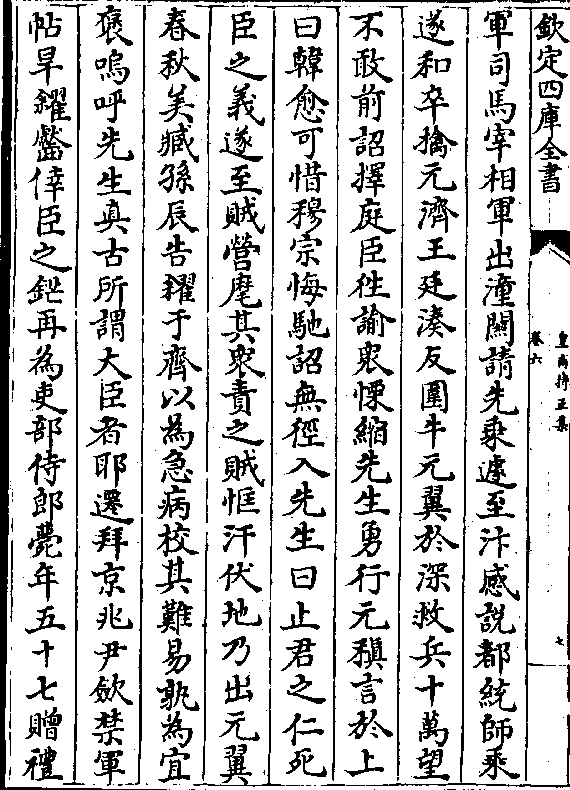 欽定四庫全書
皇甫持正集
卷六
七
軍司馬宰相軍出潼關請先乘遽至汴感說都統師乘
遂和卒擒元濟王廷湊反圍牛元翼於深救兵十萬望
不敢前詔擇庭臣徃諭衆慄縮先生勇行元稹言於上
曰韓愈可惜穆宗悔馳詔無徑入先生曰止君之仁死
臣之義遂至賊營麾其衆責之賊恇汗伏地乃出元翼
春秋美臧孫辰告糴于齊以為急病校其難易孰為宜
襃嗚呼先生真古所謂大臣者耶遷拜京兆尹歛禁軍
帖旱糴齾倖臣之鋩再為吏部侍郎薨年五十七贈禮